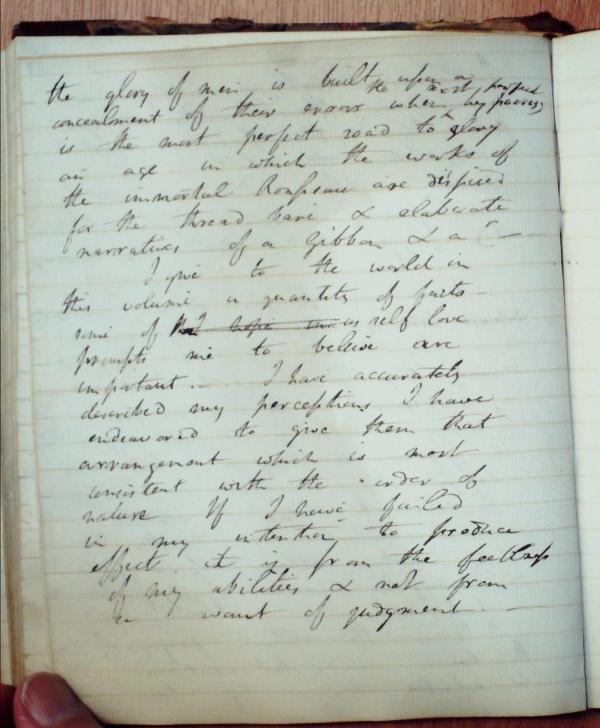 the glory of men is built upon a
concealment of their errors when the art
is the most perfect road to glory
an age in which the works of
the immortal Rousseau are despised
for the thread bare & elaborate
narratives of a Gibbon & a —
I give to the world in
this volume a quantity of facts
some of as self love
prompts me to beleive are
important. — I have accurately
described my perceptions I have
endeavored to give them that
arrangement which is most
consistent with the order of
nature If I have failed
in my intention to produce
effect it is from the feebleness
of my abilities & not from
a want of judgment. —